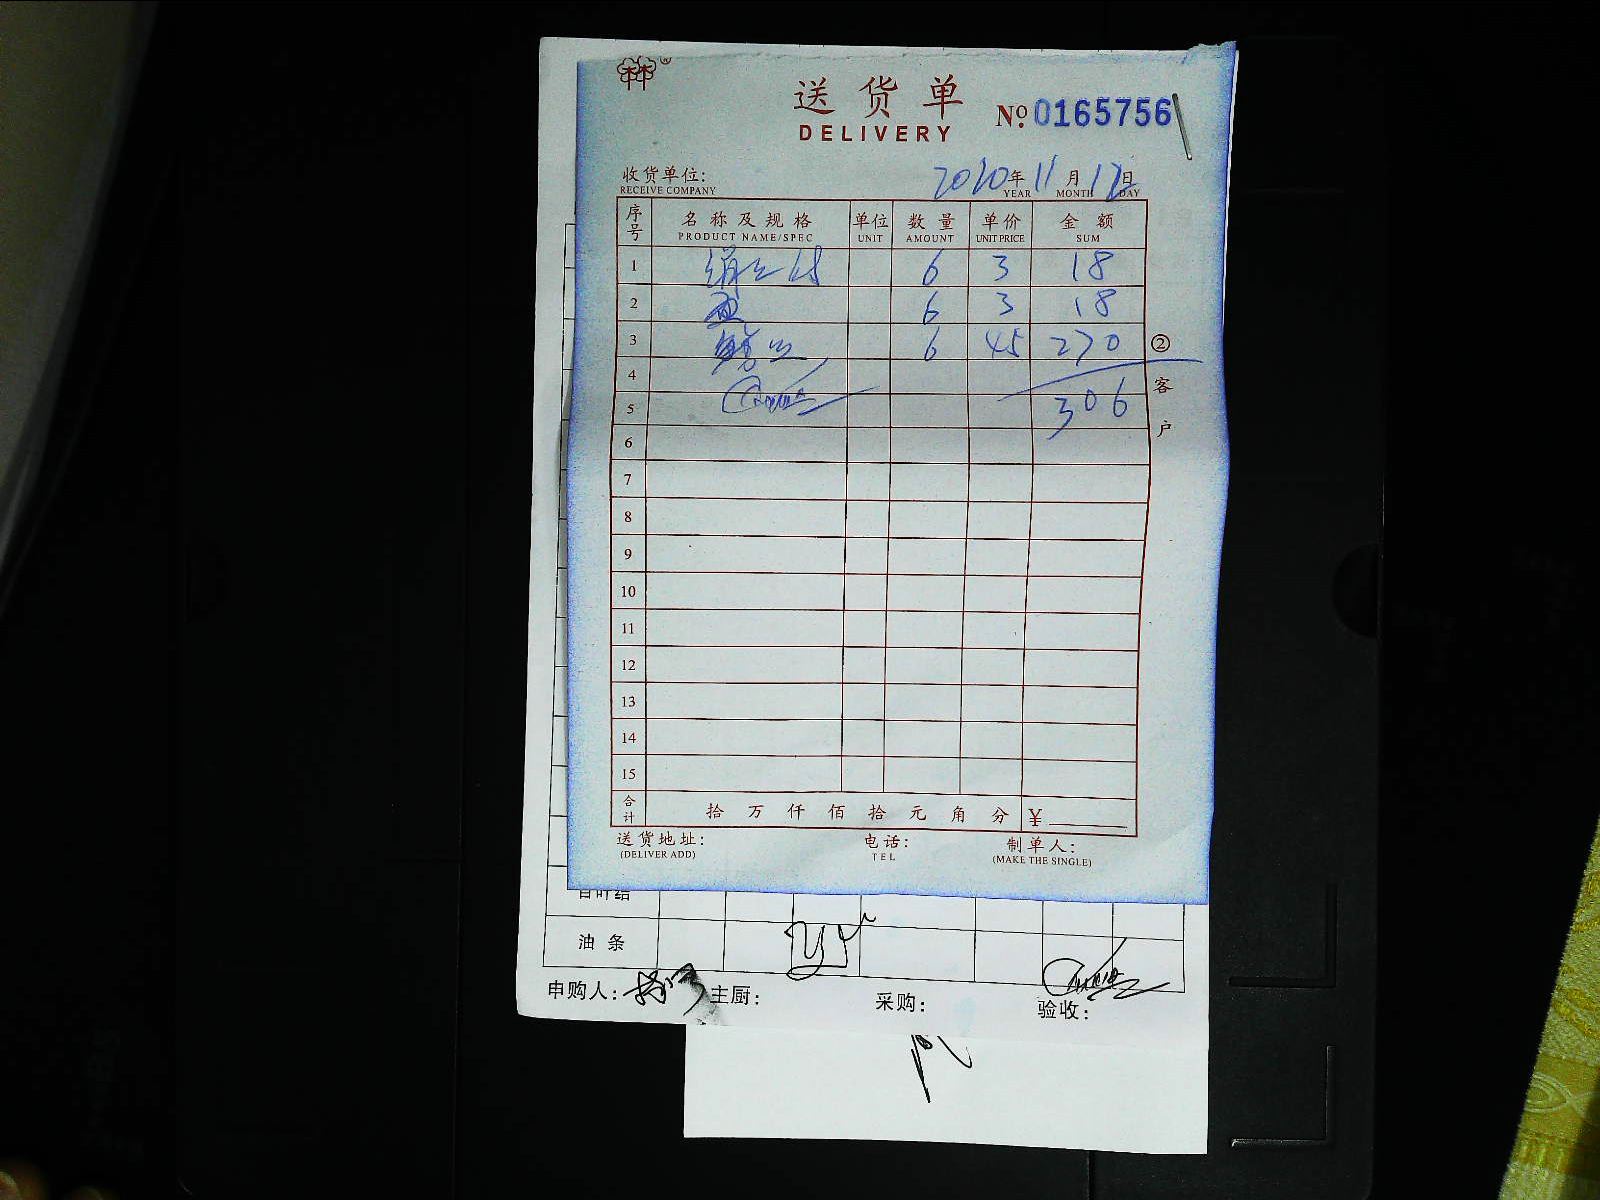 送货单
DELIVERY
No. 0165756
收货单位: 2020年11月12日
RECEIVE COMPANY YEAR MONTH DAY
序号 名称及规格 单位 数量 单价 金额
PRODUCT NAME/SPEC UNIT AMOUNT UNIT PRICE SUM
1 6 3 18
2 6 3 18
3 6 45 270
4
5 306
6
7
8
9
10
11
12
13
14
15
②客户
合计 拾 万 仟 佰 拾 元 角 分 ¥
送货地址: 电话: 制单人:
(DELIVER ADD) TEL (MAKE THE SINGLE)
百叶结
油条
申购人: 主厨: 采购: 验收: